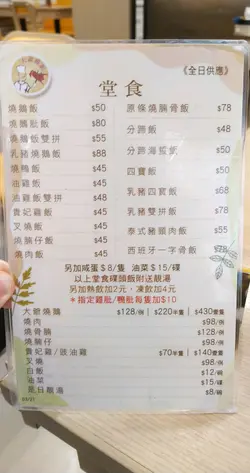 《全日供應》
堂食
燒鵝飯 $50
燒鵝髀飯 $80
燒鵝飯雙拼 $55
乳豬燒鵝飯 $88
燒鴨飯 $45
油雞飯 $45
油雞飯雙拼 $48
貴妃雞飯 $45
叉燒飯 $45
燒腩仔飯 $45
燒肉飯 $45
原條燒腩骨飯 $78
分蹄飯 $48
分蹄海蜇飯
四寶飯
乳豬四寶飯
乳豬雙拼飯 $78
泰式豬頸肉飯
西班牙一字骨飯
另加咸蛋$8/隻 油菜$15/碟
以上堂食碟頭飯附送靚湯
另加熱飲加2元，凍飲加4元
*指定雞髀/鴨髀每隻加$10
大爺燒鵝 $128/例 | $220/半隻 | $430/隻
燒肉 $98/例
燒骨腩 $128/例
燒腩仔 $98/例
貴妃雞/豉油雞 $70/半隻 | $140/隻
叉燒 $98/例
白飯 $12/碗
油菜 $15/碟
是日靚湯 $8/碗